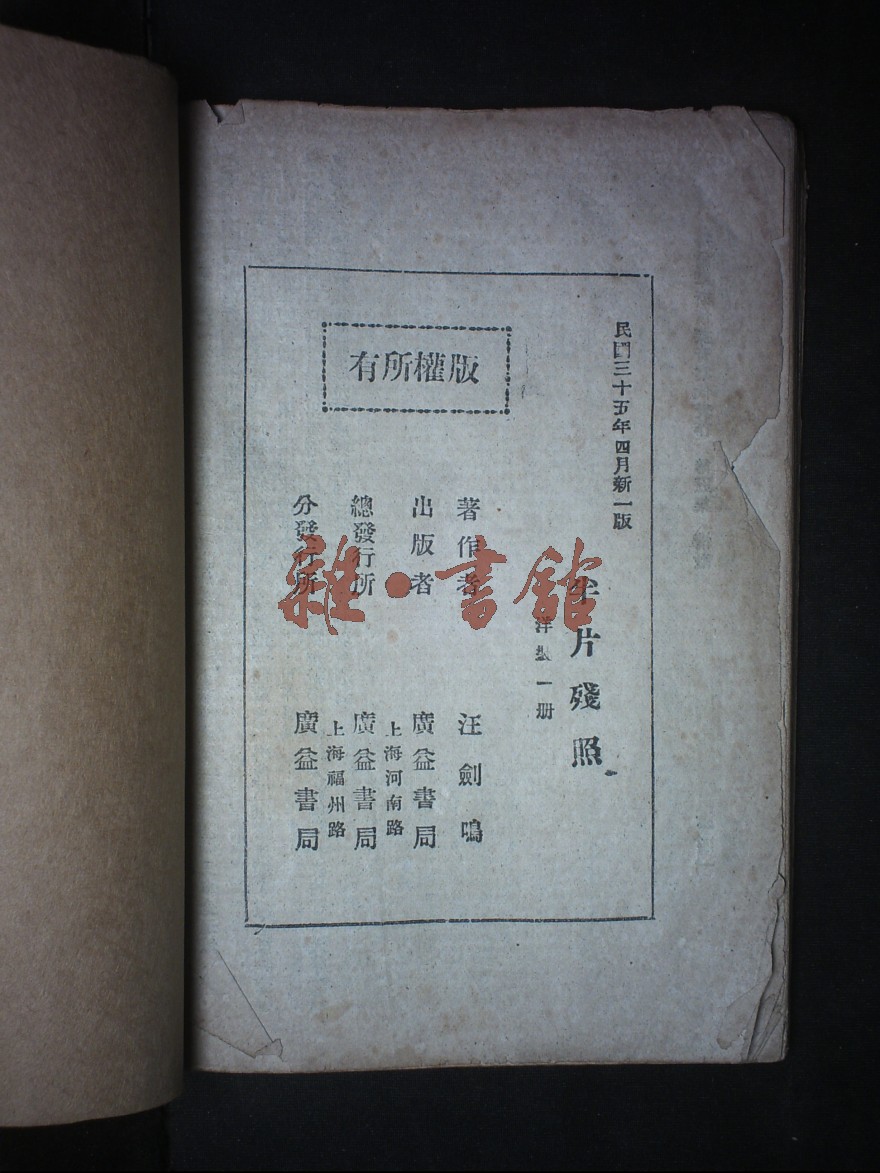 民國三十五年四月新一版
半片殘照
洋裝一册
版權所有
著作者 汪劍鳴
出版者 廣益書局
上海河南路
總發行所 廣益書局
上海福州路
分發行所 廣益書局
雜·書館